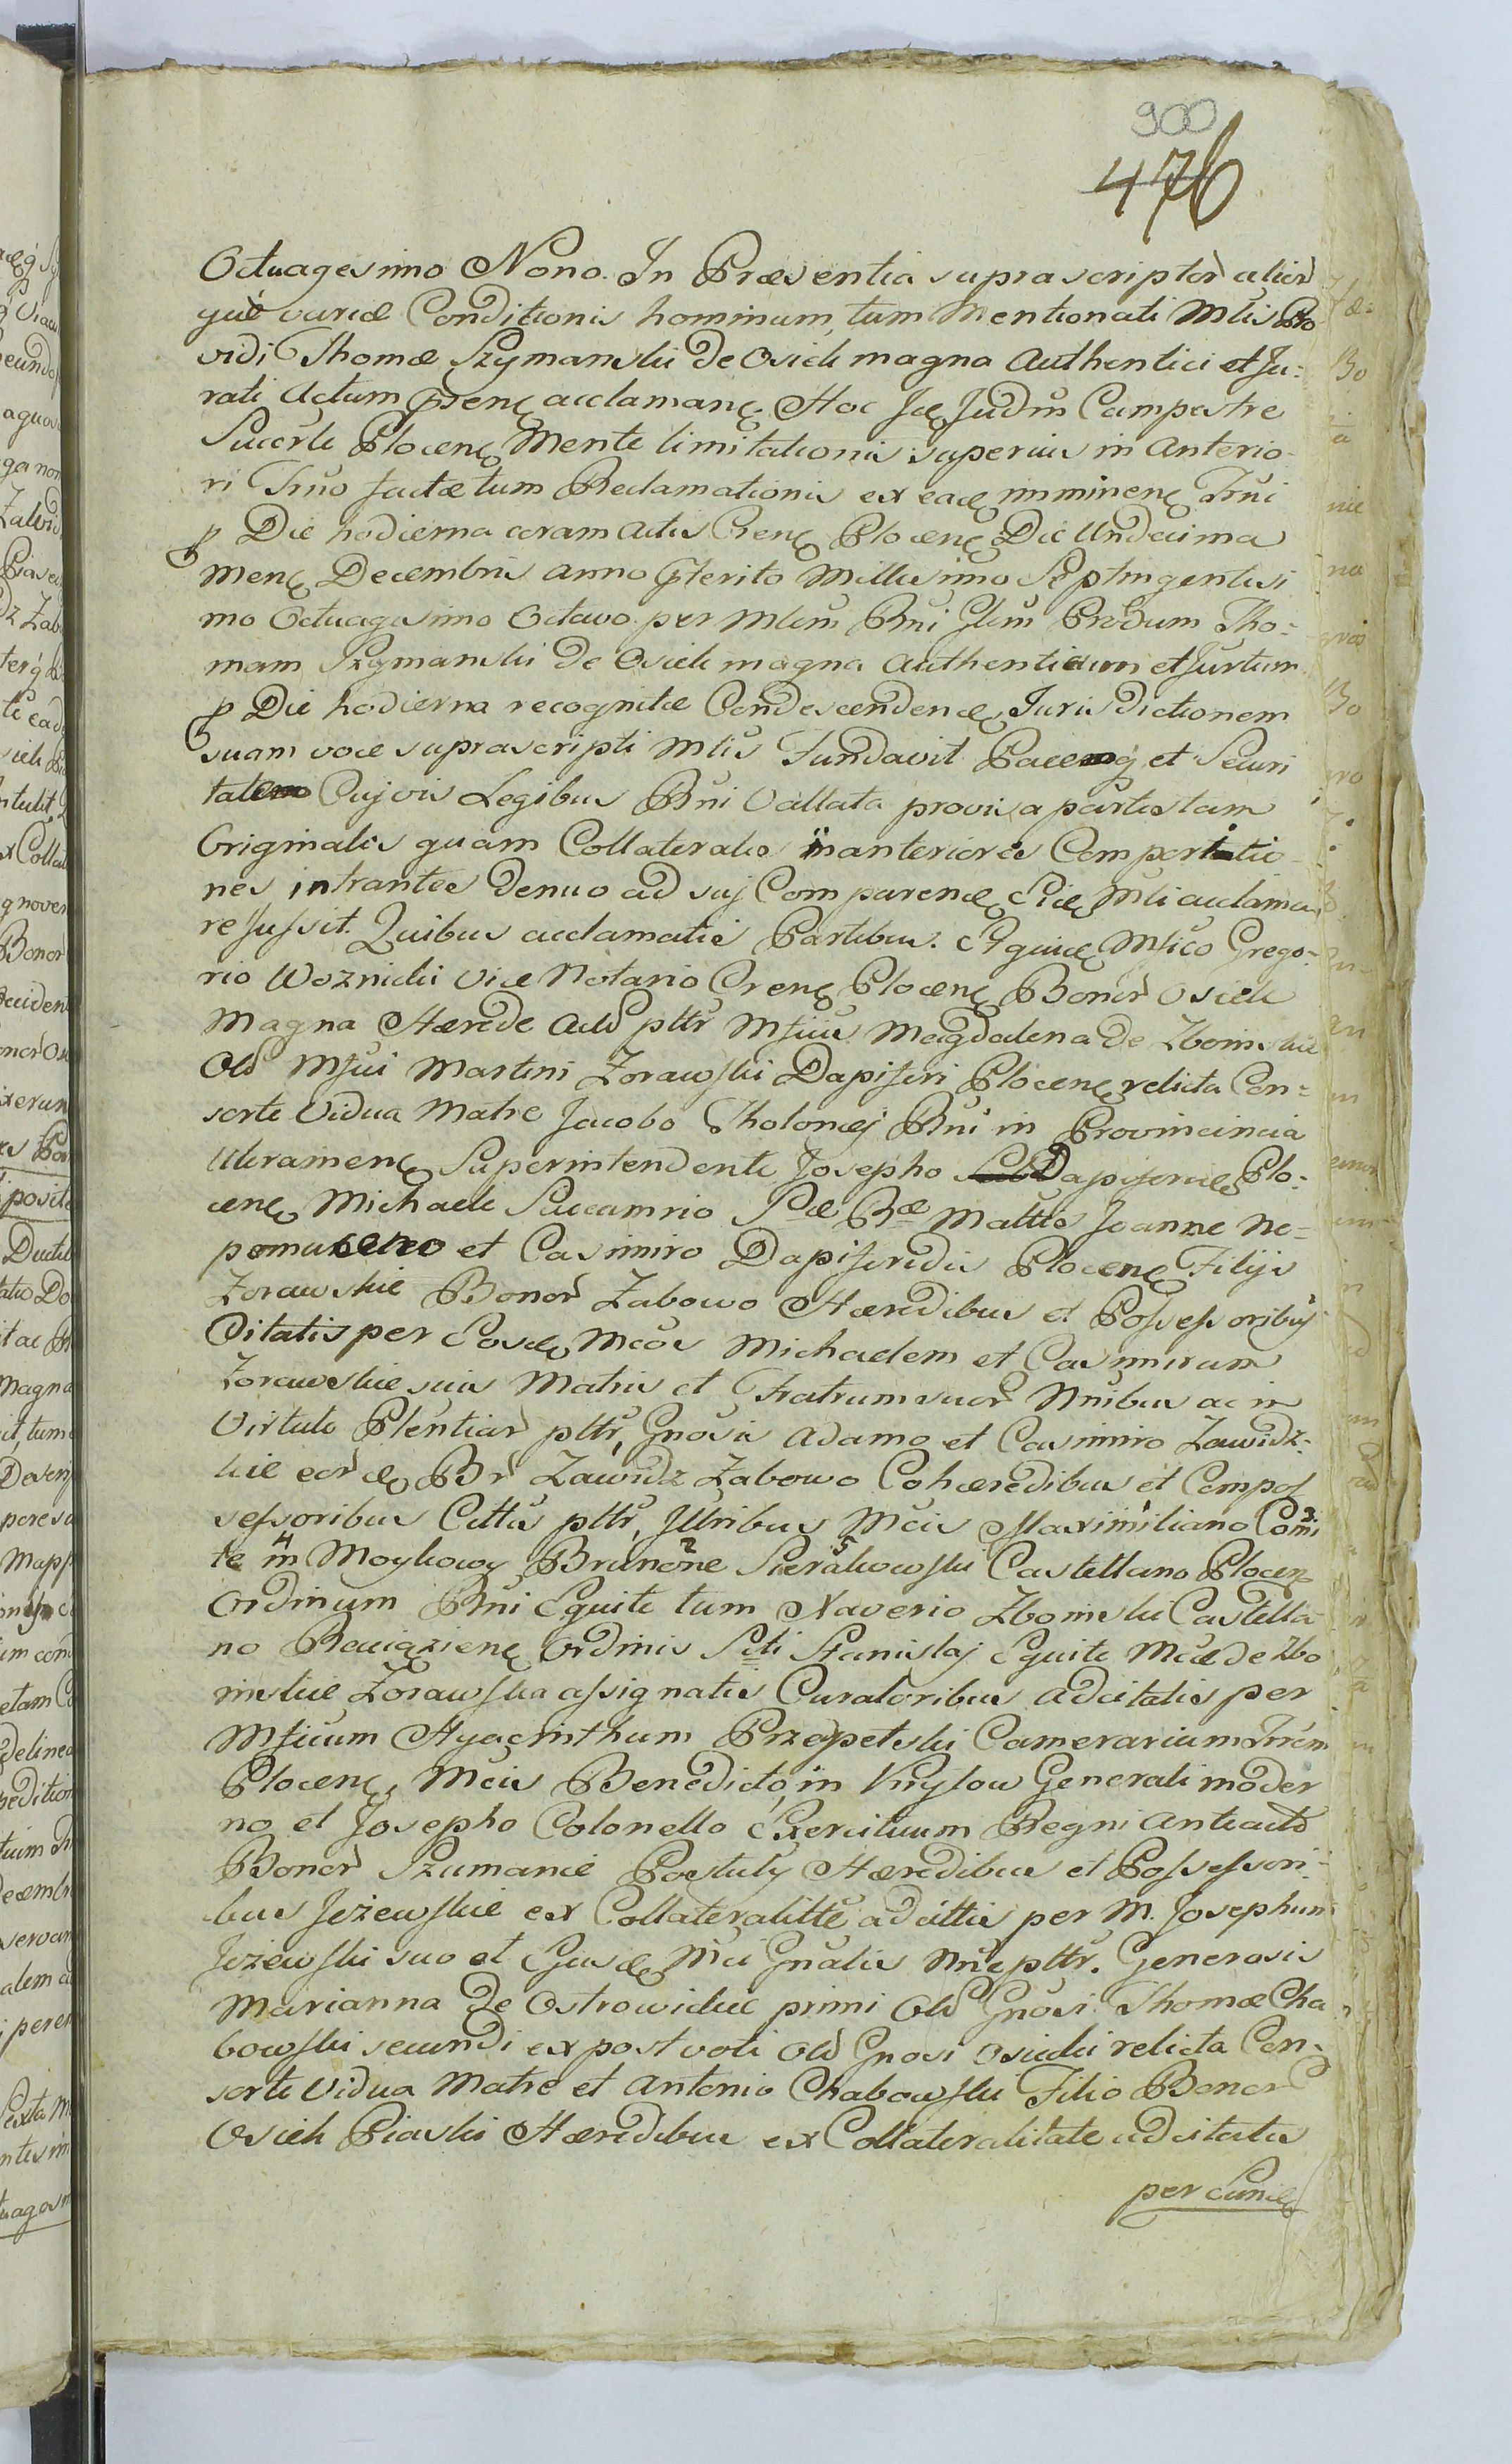 900
476
Octuagesimo Nono. In Præsentia suprascriptor alior
que variæ Conditionis hominum, tum Mentionati Mtis Pro
vidi Thomæ Szymanski de Osiek magna Authentici et Ju:
rati Actum pñs acclamanς. Hoc Jud̃m Campestre
Succ̃rle Plocenς Mente limitationis superius in Anterio
ri Trño factæ tum Reclamationis ex eadς imminenς Trñi
p Die hodierna coram Actis Crenς Plocenς Die Undecima
Menς Decembris anno pterito Millesimo Septingentesi
mo Octuagesimo Octavo per Mtem Rñi Glem Prõdum Tho:
mam Szymanski de Osiek magna Authenticum et Jurtum
p Die hodierna recognitæ Condescendenæ Juris dictionem
suam voce suprascripti Mtis Fundavit Pacemq et Securi
tatem Cujvis Legibus Rñi Vallata provisa partes tam
Originales quam Collaterales in anteriores Compertitio
nes intrantes denuo ad suj Comparenæ Mti acclama
re Jussit. Quibus acclamatis Partibus. Mfico Grego:
rio Woznicki Vice Notario Crenς Plocenς Bonor Osiek
Magna Hærede Actõ plttr Mficis Magdalena De Zboinskie
Olõ Mfici Martini Zorawski Dapiferi Plocenς relicta Con=
sorte Vidua Matre Jacobo Tholonej Rñi in Provincincia
Ukrainenς Superintendente Josepho Dapiferideς Plo:
cenς Michaele Succamrio Sæ Ræ Mattis Joanne Ne=
pomuceno et Casimiro Dapiferidis Plocenς Filijs
Zorawskie Bonor Zabowo Hæredibus et Possessoribus
Citatis per Eosdς Mcos Michaelem et Casimirum
Zorawskie suis Matris et Fratrum suor Nñibus ac in
Virtute Plentiar plttr, Gnosis Adamo et Casimiro Zawidz:
kie eor dς Br Zawidz Zabowo Cohæredibus et Compos
sessoribus Cittis plttr, Jllribus Mcis Maximiliano Comi 3
te in 4 Moykowy Brunone 2 Sierakowski 5 Castellano Plocenς
Ordinum Rñi Equite tum Xaverio Zboinski Castella
no Raciązienς Ordinis Scti Stanislaj Equite Mcæ de Zbo
inskie Zorawska assignatis Curatoribus adcitatis per
Mficum Hyacinthum Przepetski Camerarium Trrem
Plocenς, Mcis Benedicto, in Kryłow Generali moder
no et Josepho Colonello Exercituum Regni Antcactõ
Bonor Szumanie Pustuly Hæredibus et Possessori=
bus Jezewskie ex Collateralitte adcittis per M. Josephum
Jezewski suo et Ejusdς Mci Gnalis Nñe plttr. Generosis
Marianna de Ostrowickie primi Olõ Gnosi Thomæ Cha
bowski secundi ex post voti Olõ Gnosi Osiecki relicta Con=
sorte Vidua Matre et Antonio Chabowski Filio Bonor
Osiek Piaski Hæredibus ex Collateralitate adcitatis
per Eundς